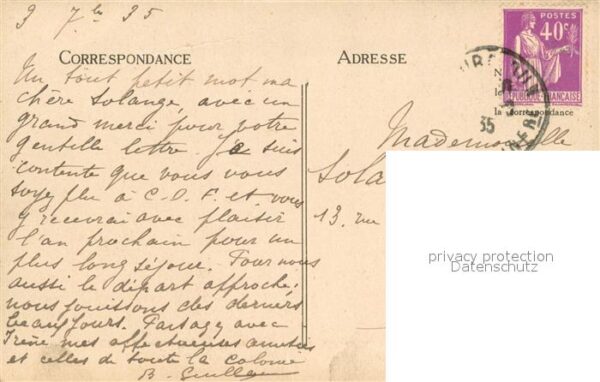 3 7bre 35
CORRESPONDANCE
Un tout petit mot ma
chère Solange, avec un
grand merci pour votre
gentille lettre. Je suis
contente que vous vous
soyez plu à C.D.F. et vous
y recevrai avec plaisir
l'an prochain pour un
plus long séjour. Pour nous
aussi le départ approche;
nous jouissons des derniers
beaux jours. Partagez avec
Irène mes affectueuses amitiés
et celles de toute la colonie
B.
ADRESSE
POSTES
40c
RÉPUBLIQUE FRANÇAISE
35
la correspondance
Mademoiselle
Sola
13, rue
privacy protection
Datenschutz